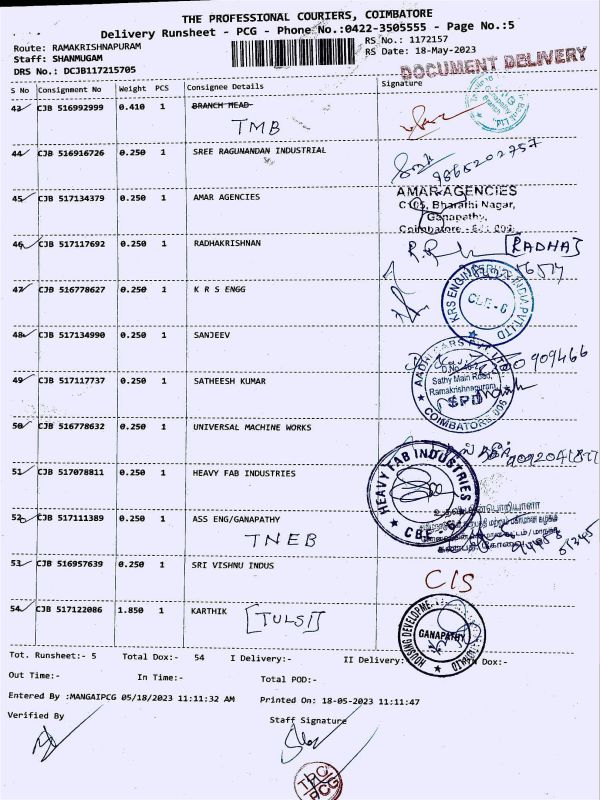 THE PROFESSIONAL COURIERS, COIMBATORE
Delivery Runsheet - PCG - Phone No.:0422-3505555 - Page No.:5
Route: RAMAKRISHNAPURAM
RS No.: 1172157
Staff: SHANMUGAM
RS Date: 18-May-2023
DRS No.: DCJB117215705
DOCUMENT DELIVERY
S No Consignment No Weight PCS Consignee Details Signature
43 CJB 516992999 0.410 1 BRANCH MEAD
TMB
44 CJB 516916726 0.250 1 SREE RAGUNANDAN INDUSTRIAL
9865202757
45 CJB 517134379 0.250 1 AMAR AGENCIES
AMAR AGENCIES
C105, Bharathi Nagar,
Ganapathy,
Coimbatore
46 CJB 517117692 0.250 1 RADHAKRISHNAN
[RADHA]
47 CJB 516778627 0.250 1 K R S ENGG
KRS ENGINEERING INDIA PVT LTD
CBE-6
48 CJB 517134990 0.250 1 SANJEEV
909466
AADHI CARS PVT LTD
Sathy Main Road,
Ramakrishnapuram,
COIMBATORE 006
49 CJB 517117737 0.250 1 SATHEESH KUMAR
50 CJB 516778632 0.250 1 UNIVERSAL MACHINE WORKS
51 CJB 517078811 0.250 1 HEAVY FAB INDUSTRIES
HEAVY FAB INDUSTRIES
CBE - 6
52 CJB 517111389 0.250 1 ASS ENG/GANAPATHY
TNEB
53 CJB 516957639 0.250 1 SRI VISHNU INDUS
CIS
54 CJB 517122086 1.850 1 KARTHIK [TULSI]
HOUSING DEVELOPME
GANAPATHY
Tot. Runsheet:- 5 Total Dox:- 54 I Delivery:- II Delivery: Dox:-
Out Time:- In Time:- Total POD:-
Entered By :MANGAIPCG 05/18/2023 11:11:32 AM Printed On: 18-05-2023 11:11:47
Verified By Staff Signature
PCG